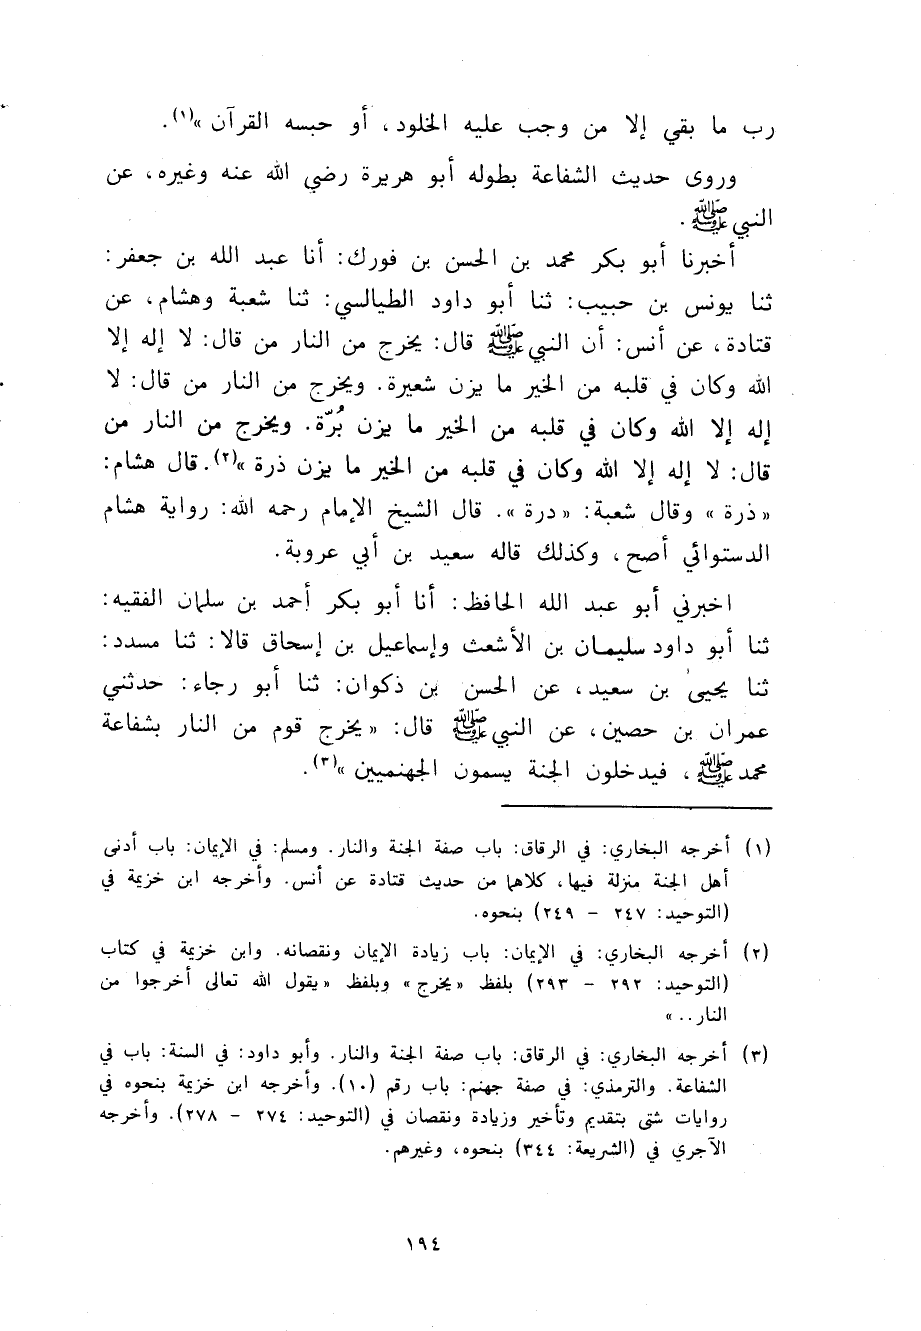 رب ما بقي إلا من وجب عليه الخلود، أو حبسه القرآن »(١).
وروى حديث الشفاعة بطوله أبو هريرة رضي الله عنه وغيره، عن
النبي ﷺ.
أخبرنا أبو بكر محمد بن الحسن بن فورك: أنا عبد الله بن جعفر:
ثنا يونس بن حبيب: ثنا أبو داود الطيالسي: ثنا شعبة وهشام، عن
قتادة، عن أنس: أن النبي ﷺ قال: يخرج من النار من قال: لا إله إلا
الله وكان في قلبه من الخير ما يزن شعيرة. ويخرج من النار من قال: لا
إله إلا الله وكان في قلبه من الخير ما يزن بُرّة. ويخرج من النار من
قال: لا إله إلا الله وكان في قلبه من الخير ما يزن ذرة »(٢). قال هشام:
« ذرة » وقال شعبة: « درة ». قال الشيخ الإمام رحمه الله: رواية هشام
الدستوائي أصح، وكذلك قاله سعيد بن أبي عروبة.
اخبرني أبو عبد الله الحافظ: أنا أبو بكر أحمد بن سلمان الفقيه:
ثنا أبو داود سليمان بن الأشعث وإسماعيل بن إسحاق قالا: ثنا مسدد:
ثنا يحيى بن سعيد، عن الحسن بن ذكوان: ثنا أبو رجاء: حدثني
عمران بن حصين، عن النبي ﷺ قال: « يخرج قوم من النار بشفاعة
محمد ﷺ، فيدخلون الجنة يسمون الجهنميين »(٣).
(١) أخرجه البخاري: في الرقاق: باب صفة الجنة والنار. ومسلم: في الإيمان: باب أدنى
أهل الجنة منزلة فيها، كلاهما من حديث قتادة عن أنس. وأخرجه ابن خزيمة في
(التوحيد: ٢٤٧ – ٢٤٩) بنحوه.
(٢) أخرجه البخاري: في الإيمان: باب زيادة الإيمان ونقصانه. وابن خزيمة في كتاب
(التوحيد: ٢٩٢ – ٢٩٣) بلفظ « يخرج » وبلفظ « يقول الله تعالى أخرجوا من
النار.. »
(٣) أخرجه البخاري: في الرقاق: باب صفة الجنة والنار. وأبو داود: في السنة: باب في
الشفاعة. والترمذي: في صفة جهنم: باب رقم (١٠). وأخرجه ابن خزيمة بنحوه في
روايات شتى بتقديم وتأخير وزيادة ونقصان في (التوحيد: ٢٧٤ – ٢٧٨). وأخرجه
الآجري في (الشريعة: ٣٤٤) بنحوه، وغيرهم.
١٩٤